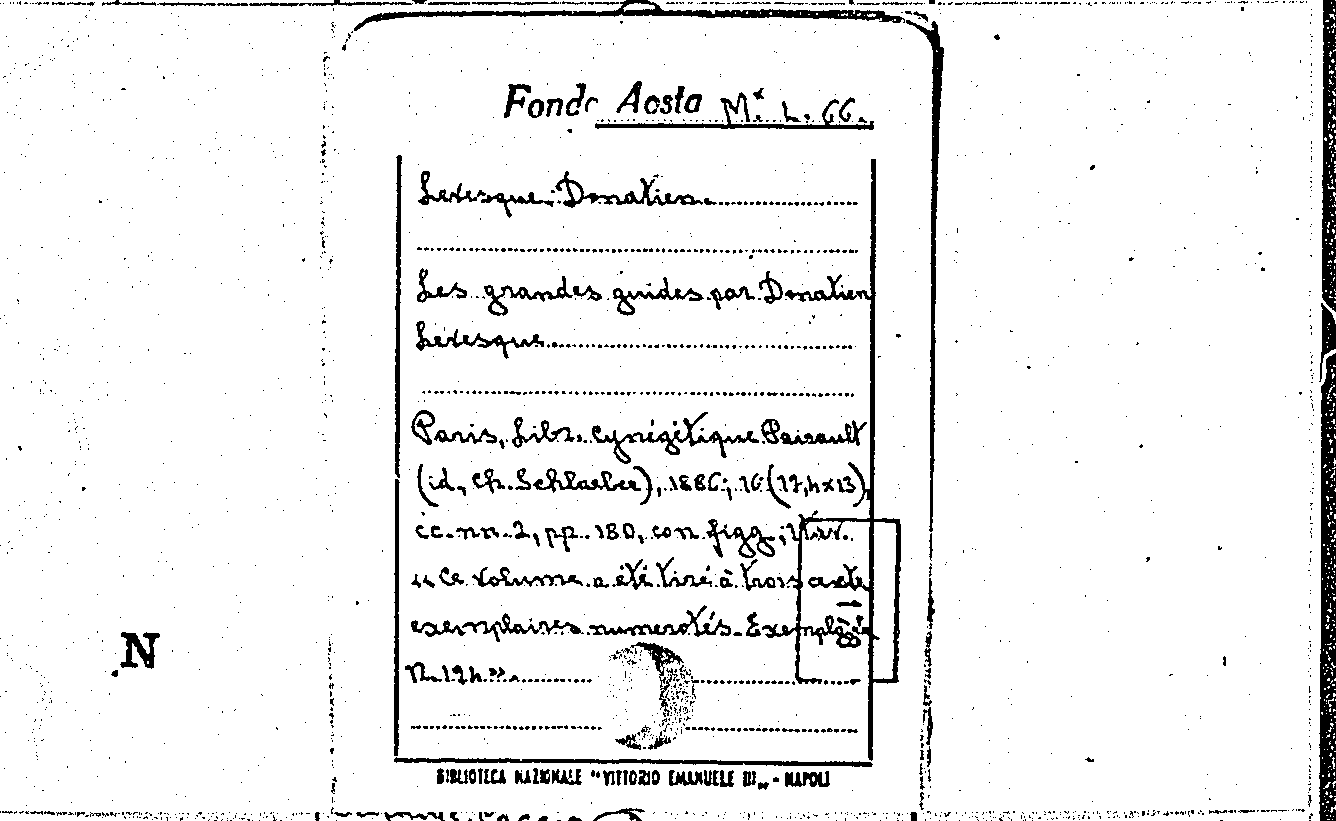 Fondo Aosta Mˣ. L. 66.
Levesque Donatien.
Les grandes guides par Donatien
Levesque.
Paris, Libr. Cynégétique Pairault
(id., Ch. Schlaeber), 1886; 16 (17,4x13),
cc. nn. 2, pp. 180, con figg.; 1 tav.
"Ce volume a été tiré à trois cents
exemplaires numerotés. Exemplaire
N. 124".
BIBLIOTECA NAZIONALE "VITTORIO EMANUELE III„ - NAPOLI
N